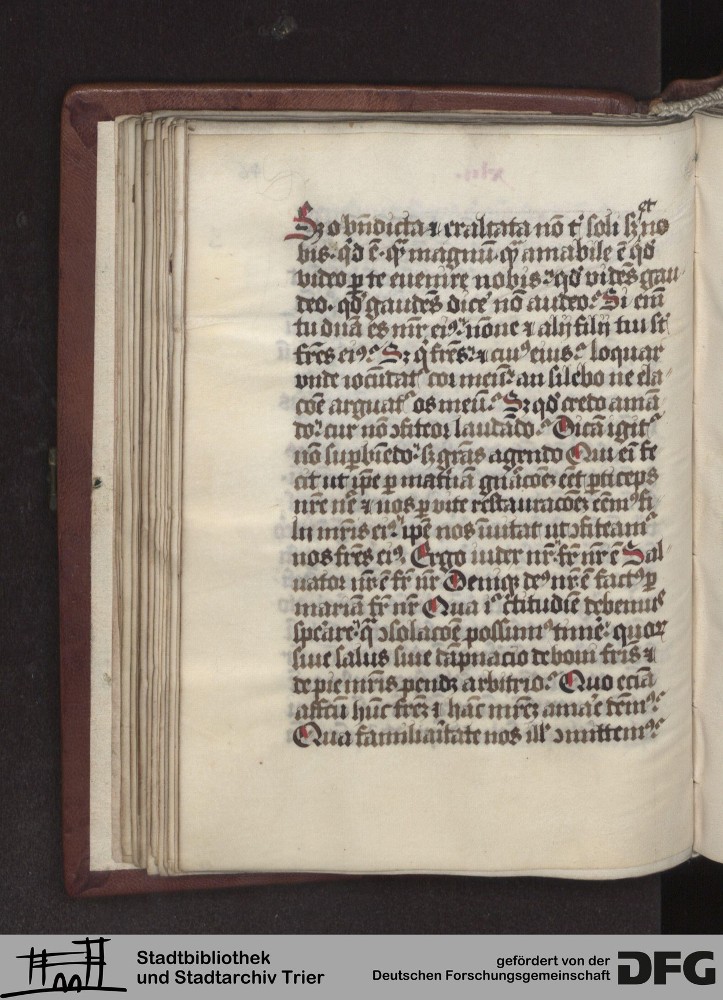 et
Sz o bn̄dicta ⁊ exaltata nō t' soli sz no
bis. qd̄ ē. qͣ magnū. qͣ amabile ē qd̄
video ꝑ te euenire nobis. qd̄ vidēs gau
deo. qd̄ gaudēs dice' nō audeo. Si em̄
tu dn̄a es mr̄ eiꝰ. nōne ⁊ alij filij tui st̄
fr̄es eiꝰ. Sz q̇ fr̄es. ⁊ cuiꝰ eius. loquar
vnde iocūdat' cor meū. an silebo ne ela
cōe arguat' os meū. Sz qd̄ credo amā
do. cur nō ꝯfiteor laudādo. Dicā igit'
nō suꝑbiēdo. sz gr̄as agendo Qui em̄ fe
cit ut ip̄e ꝑ mat'nā gn̄acōeꝫ eēt ꝑticeps
nr̄e ne' ⁊ nos ꝑ vite restauracōeꝫ eēmꝰ fi
lii mr̄is eiꝰ. ip̄e nos īuitat ut ꝯfiteamꝰ
nos fr̄es eiꝰ. Ergo iudex nr̄. fr̄ nr̄ ē Sal
uator nr̄ ē fr̄ nr̄ Deniqꝫ deꝰ nr̄ ē factꝰ ꝑ
mariā fr̄ nr̄ Qua iꝰ c'titudīe debemꝰ
sꝑare. qͣ ꝯsolacōe possumꝰ time'. quoꝝ
siue salus siue dāpnacio de boni fr̄is ⁊
de pie mr̄is pendꝫ arbitrio. Quo eciā
affcū hūc fr̄eꝫ ⁊ hāc mr̄eꝫ ama'e dēmꝰ.
Qua familiaritate nos ill' ꝯmittemꝰ.
xlij.
Stadtbibliothek
und Stadtarchiv Trier
gefördert von der
Deutschen Forschungsgemeinschaft
DFG